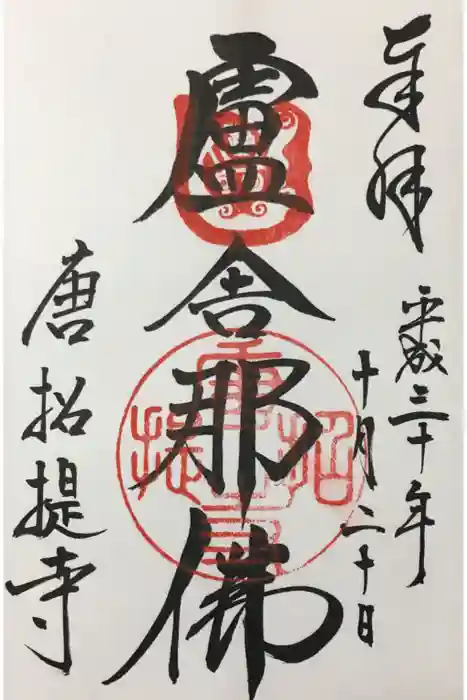 奉拝
平成三十年
十月二十日
盧舎那佛
唐招提寺
唐招提寺